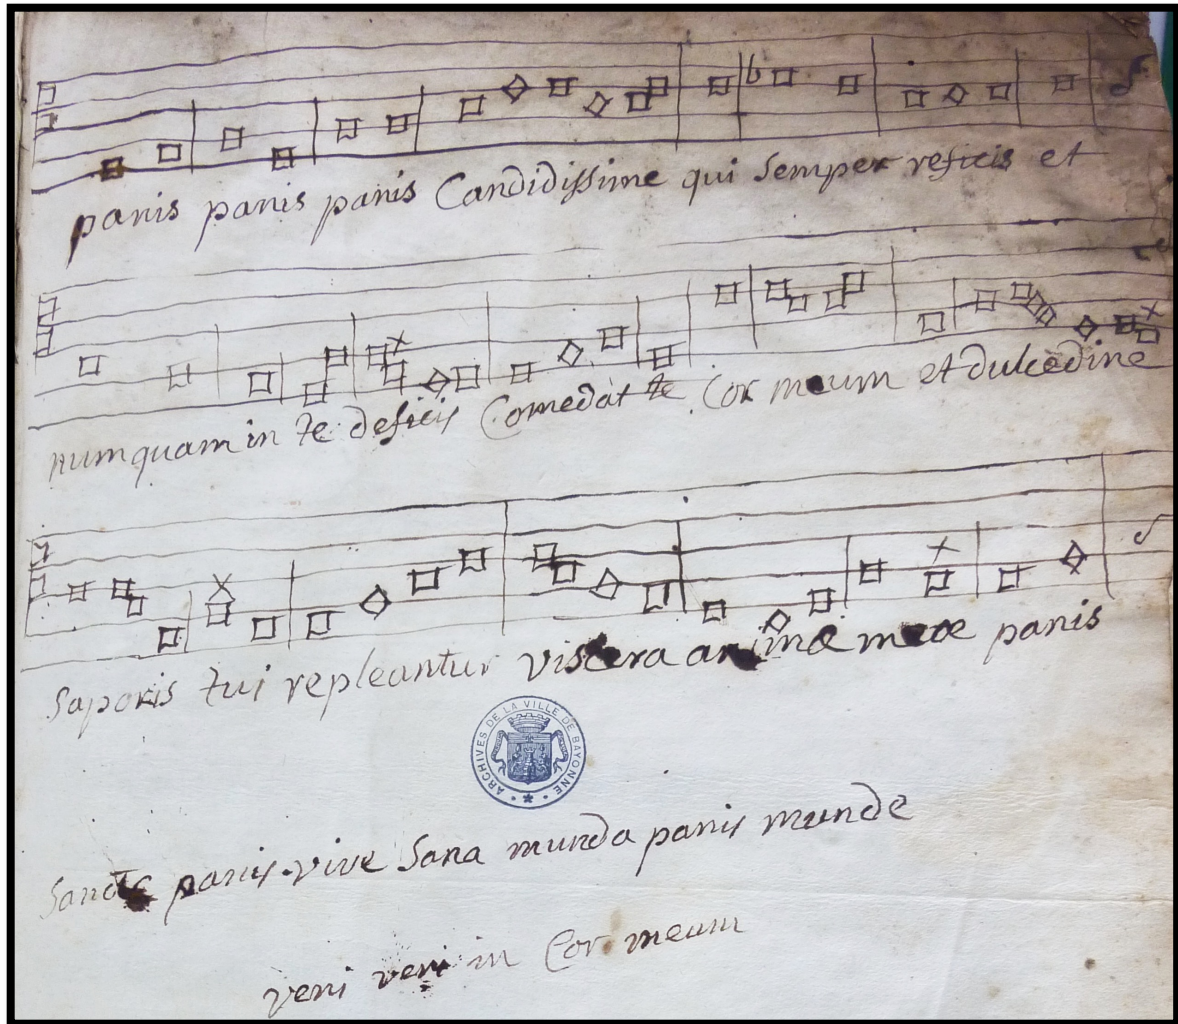 panis panis panis Candidissime qui Semper reficis et
numquam in te deficis Comedat te Cor meum et dulcedine
Saporis tui repleantur viscera animæ meæ panis
ARCHIVES DE LA VILLE DE BAYONNE
Sancte panis vive Sana munda panis munde
veni veni in Cor meum